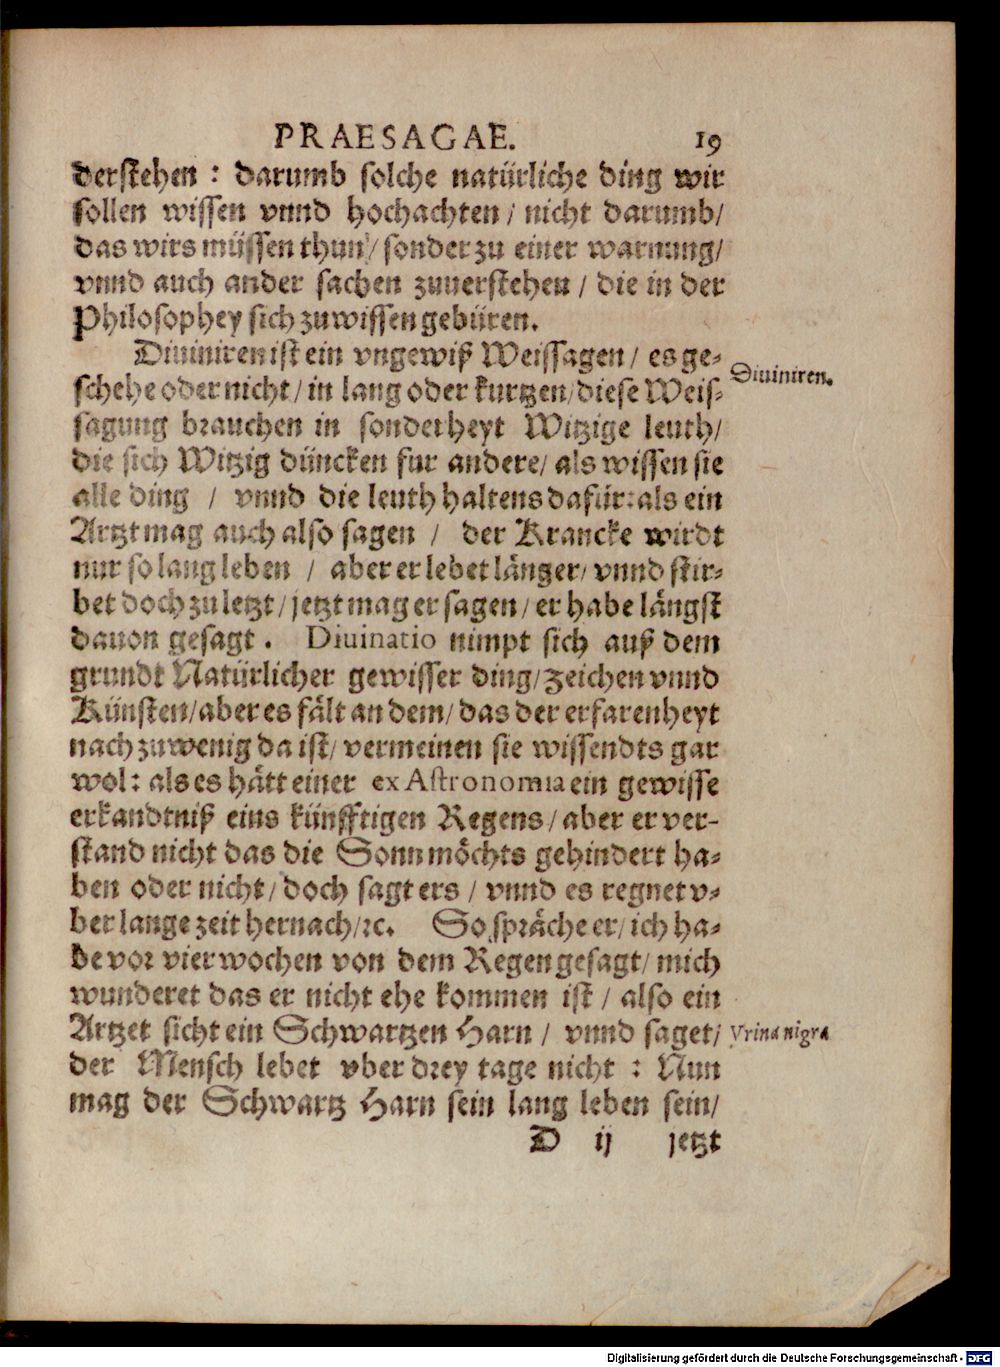 PRAESAGAE. 19
derstehen : darumb solche natürliche ding wir
sollen wissen vnnd hochachten / nicht darumb /
das wirs müssen thun / sonder zu einer warnung /
vnnd auch ander sachen zuuerstehen / die in der
Philosophey sich zuwissen gebüren.
Diuiniren ist ein vngewiß Weissagen / es ge-
schehe oder nicht / in lang oder kurtzen / diese Weis-
Diuiniren.
sagung brauchen in sonderheyt Witzige leuth /
die sich Witzig düncken fur andere / als wissen sie
alle ding / vnnd die leuth haltens dafür: als ein
Artzt mag auch also sagen / der Krancke wirdt
nur so lang leben / aber er lebet länger / vnnd stir-
bet doch zu letzt / jetzt mag er sagen / er habe längst
dauon gesagt . Diuinatio nimpt sich auß dem
grundt Natürlicher gewisser ding / zeichen vnnd
Künsten / aber es fält an dem / das der erfarenheyt
nach zuwenig da ist / vermeinen sie wissendts gar
wol : als es hätt einer ex Astronomia ein gewisse
erkandtniß eins künfftigen Regens / aber er ver-
stand nicht das die Sonn möchts gehindert ha-
ben oder nicht / doch sagt ers / vnnd es regnet v-
ber lange zeit hernach / ꝛc. So spräche er / ich ha-
be vor vier wochen von dem Regen gesagt / mich
wunderet das er nicht ehe kommen ist / also ein
Artzet sicht ein Schwartzen Harn / vnnd saget /
Vrina nigra
der Mensch lebet vber drey tage nicht : Nun
mag der Schwartz Harn sein lang leben sein /
D ij jetzt
Digitalisierung gefördert durch die Deutsche Forschungsgemeinschaft - DFG